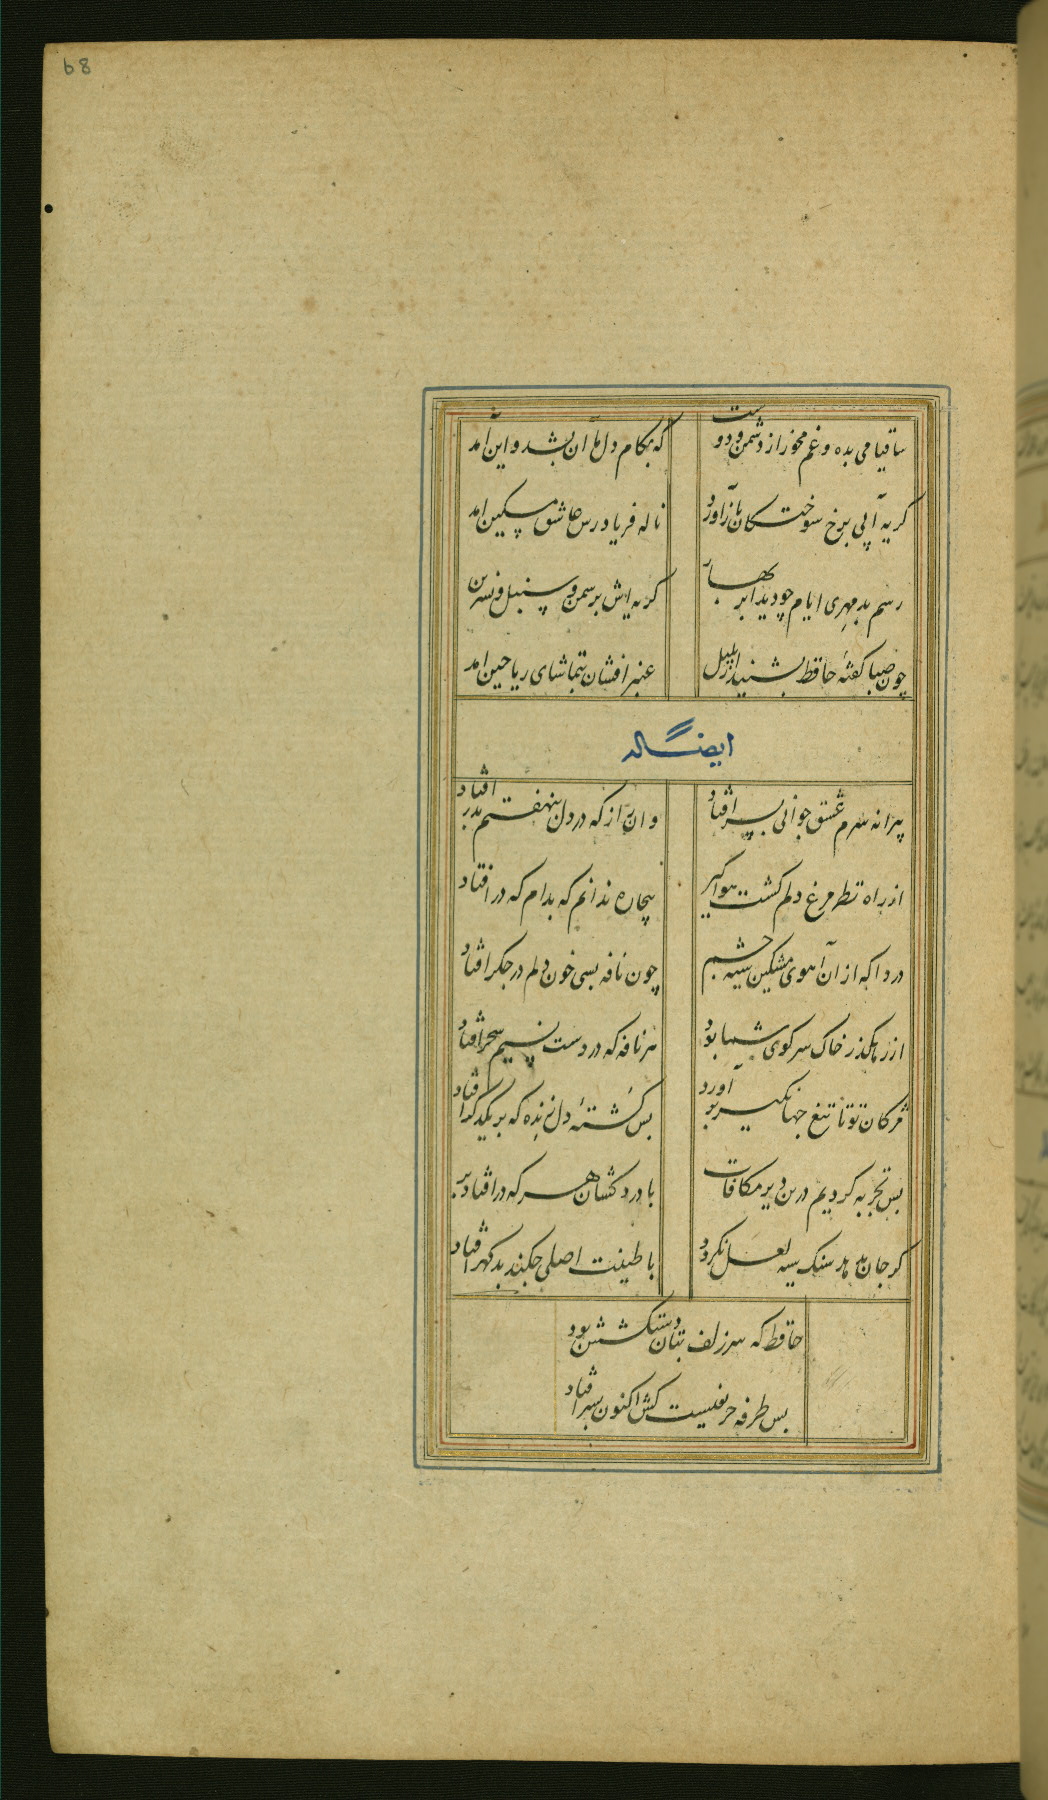 68
ساقیا می بده و غم مخور از دشمن و دوست که بکام دل ما آن بشد و این آمد
کریه آبی برخ سوختکان باز آورد ناله فریادرس عاشق مسکین امد
رسم بدمهری ایام چو دید ابر بهار کریه اش بر سمن و سنبل و نسرین
چون صبا کفتهٔ حافظ بشنید از بلبل عنبر افشان بتماشای ریاحین امد
ایضاله
پیرانه سرم عشق جوانی بسر افتاد وان راز که در دل بنهفتم بدر افتاد
از راه نظر مرغ دلم کشت هواکیر بیچاره ندانم که بدام که در افتاد
دردا که از ان آهوی مشکین سیه چشم چون نافه بسی خون دلم در جکر افتاد
از رهکذر خاک سر کوی شما بود هر نافه که در دست نسیم سحر افتاد
مژکان تو تا تیغ جهانکیر بر آورد بس کشتهٔ دل زنده که بر یکدکر افتاد
بس تجربه کردیم درین دیر مکافات با درد کشان هر که در افتاد بر
کر جان بدهد سنک سیه لعل نکردد با طینت اصلی چکند بدکهر افتاد
حافظ که سر زلف بتان دستکشش بود
بس طرفه حریفیست کش اکنون بسر افتاد